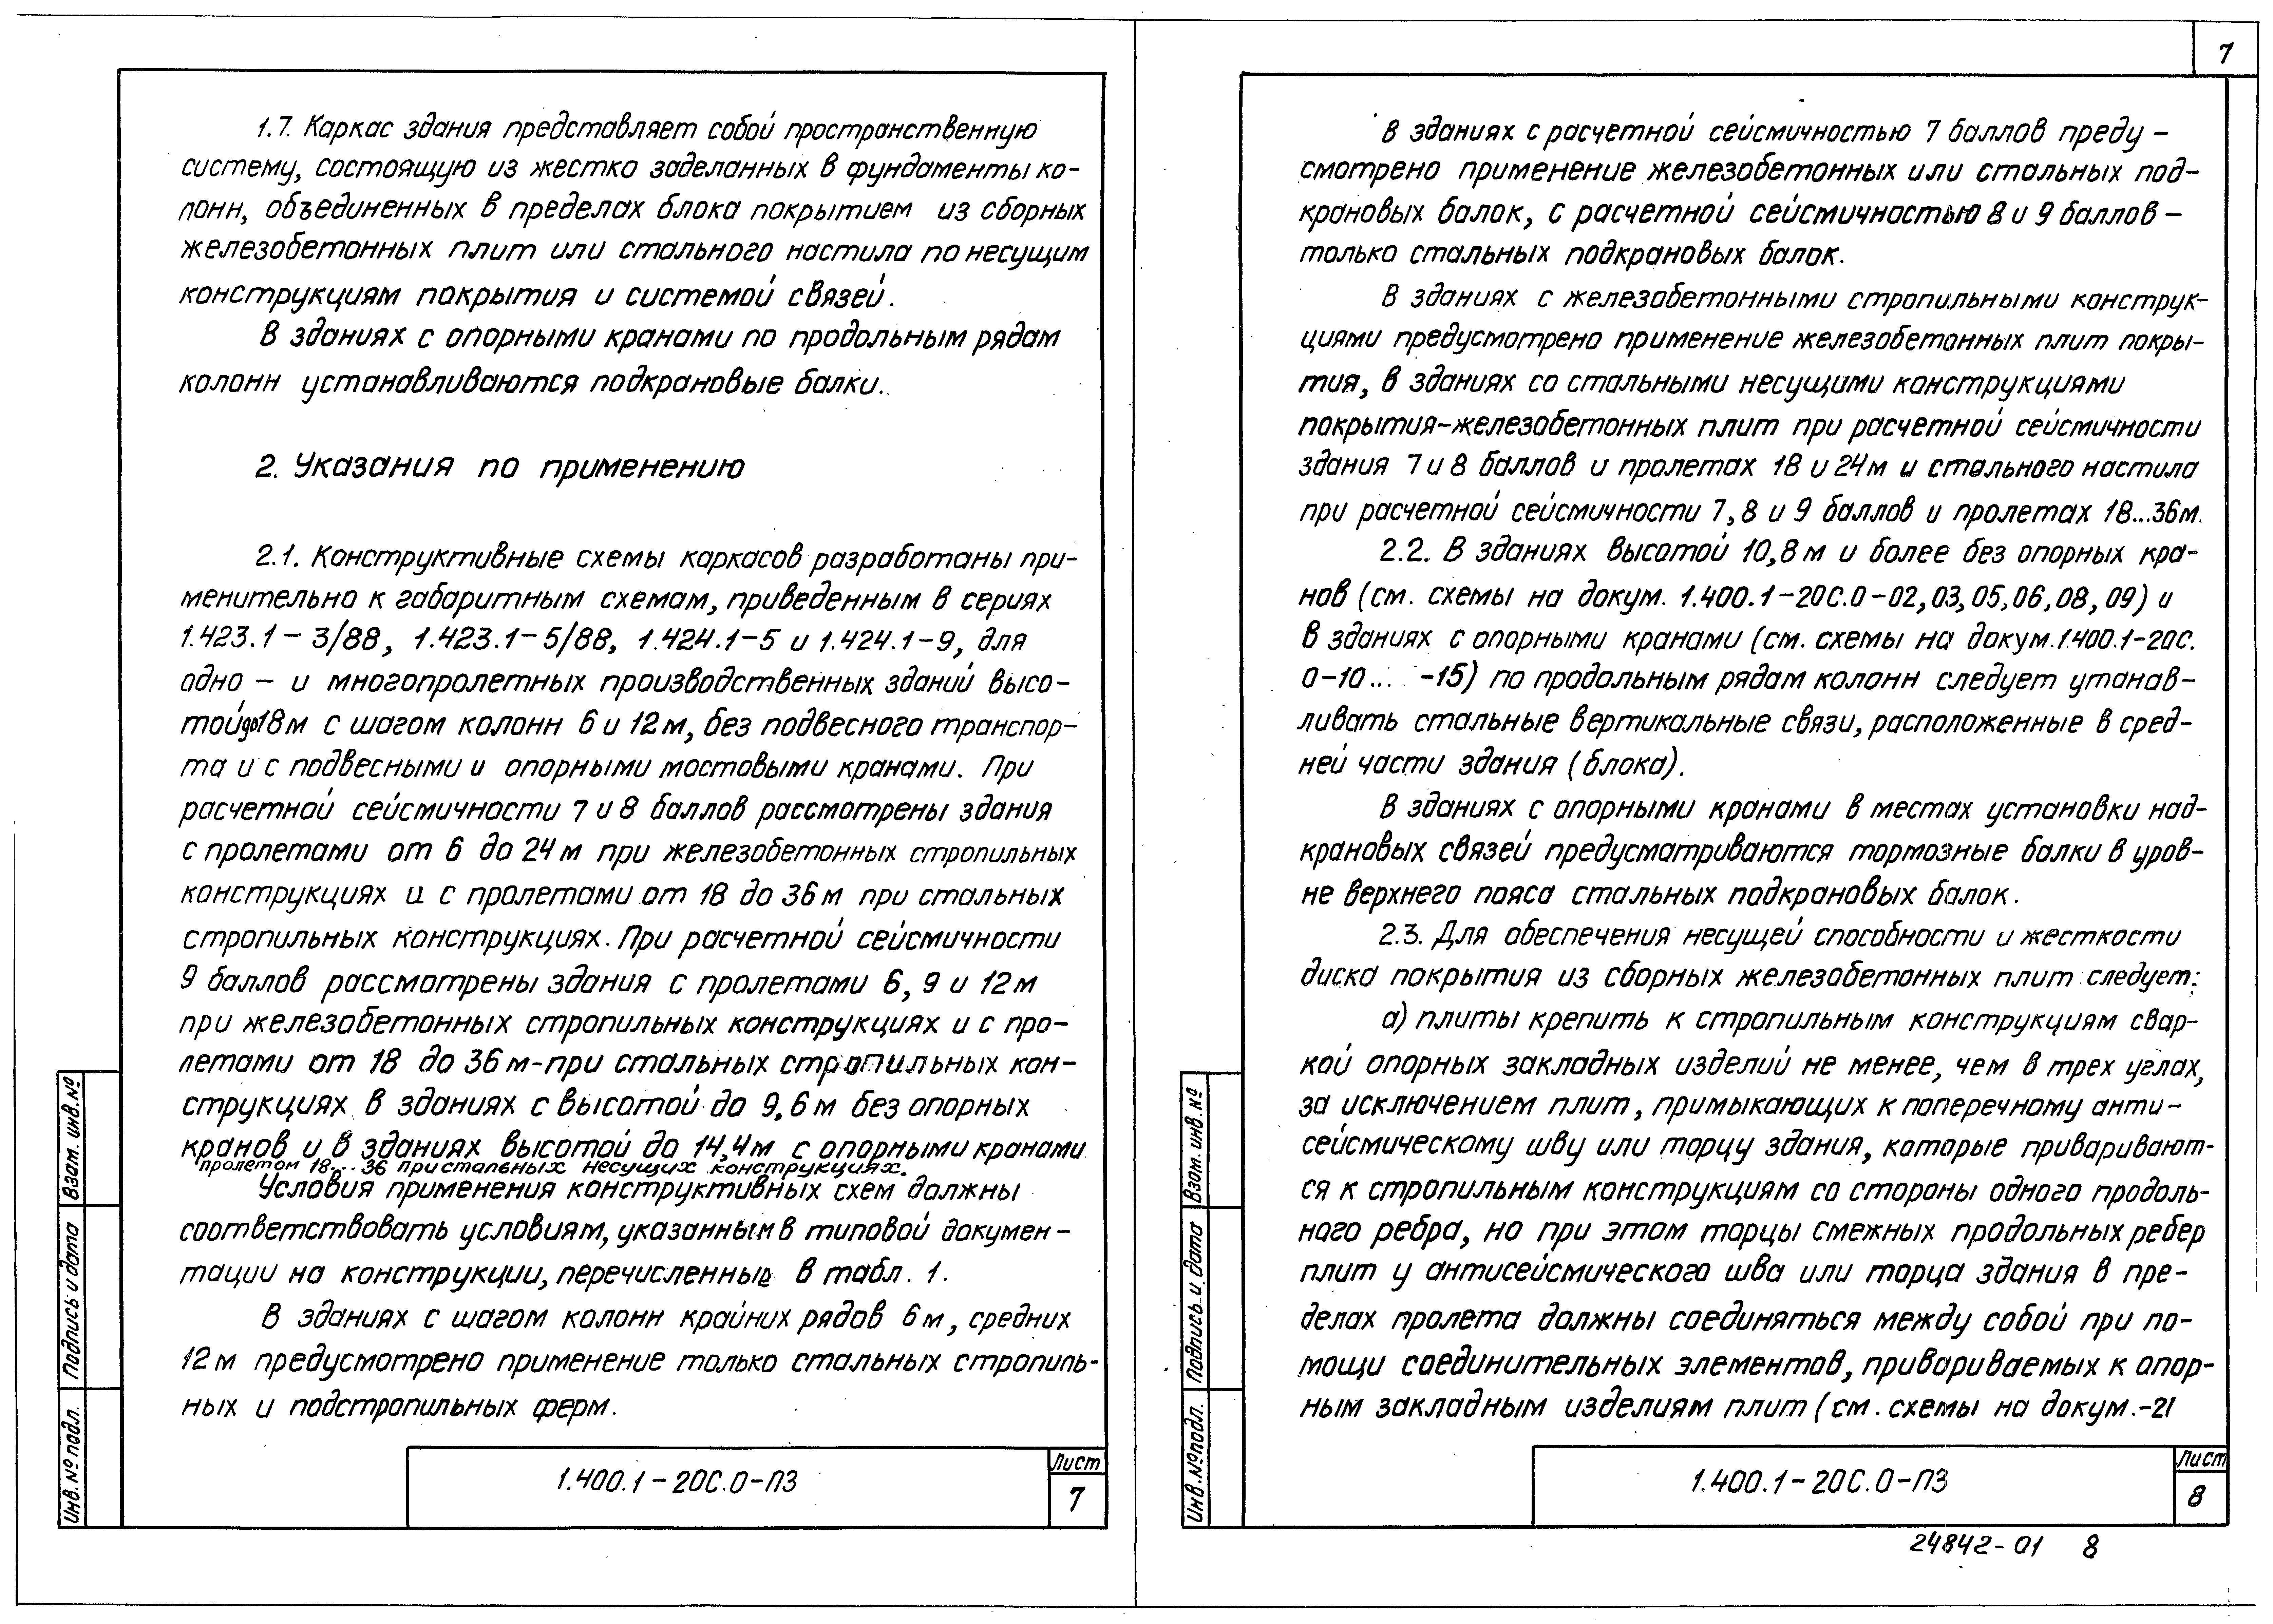 1.7. Каркас здания представляет собой пространственную
систему, состоящую из жестко заделанных в фундаменты ко-
лонн, объединенных в пределах блока покрытием из сборных
железобетонных плит или стального настила по несущим
конструкциям покрытия и системой связей.
В зданиях с опорными кранами по продольным рядам
колонн устанавливаются подкрановые балки.
2. Указания по применению
2.1. Конструктивные схемы каркасов разработаны при-
менительно к габаритным схемам, приведенным в сериях
1.423.1-3/88, 1.423.1-5/88, 1.424.1-5 и 1.424.1-9, для
одно - и многопролетных производственных зданий высо-
той до 18м с шагом колонн 6 и 12м, без подвесного транспор-
та и с подвесными и опорными мостовыми кранами. При
расчетной сейсмичности 7 и 8 баллов рассмотрены здания
с пролетами от 6 до 24м при железобетонных стропильных
конструкциях и с пролетами от 18 до 36м при стальных
стропильных конструкциях. При расчетной сейсмичности
9 баллов рассмотрены здания с пролетами 6, 9 и 12м
при железобетонных стропильных конструкциях и с про-
летами от 18 до 36м-при стальных стропильных кон-
струкциях в зданиях с высотой до 9,6м без опорных
кранов и в зданиях высотой до 14,4м с опорными кранами
пролетом 18...36 при стальных несущих конструкциях.
Условия применения конструктивных схем должны
соответствовать условиям, указанным в типовой докумен-
тации на конструкции, перечисленные в табл. 1.
В зданиях с шагом колонн крайних рядов 6м, средних
12м предусмотрено применение только стальных стропиль-
ных и подстропильных ферм.
1.400.1-20С.0-ПЗ
Лист
7
Взам. инв.№
Подпись и дата
Инв.№подл.
7
В зданиях с расчетной сейсмичностью 7 баллов преду-
смотрено применение железобетонных или стальных под-
крановых балок, с расчетной сейсмичностью 8 и 9 баллов-
только стальных подкрановых балок.
В зданиях с железобетонными стропильными конструк-
циями предусмотрено применение железобетонных плит покры-
тия, в зданиях со стальными несущими конструкциями
покрытия-железобетонных плит при расчетной сейсмичности
здания 7 и 8 баллов и пролетах 18 и 24м и стального настила
при расчетной сейсмичности 7, 8 и 9 баллов и пролетах 18...36м.
2.2. В зданиях высотой 10,8м и более без опорных кра-
нов (см. схемы на докум. 1.400.1-20С.0-02, 03, 05, 06, 08, 09) и
в зданиях с опорными кранами (см. схемы на докум. 1.400.1-20С.
0-10... -15) по продольным рядам колонн следует утанав-
ливать стальные вертикальные связи, расположенные в сред-
ней части здания (блока).
В зданиях с опорными кранами в местах установки над-
крановых связей предусматриваются тормозные балки в уров-
не верхнего пояса стальных подкрановых балок.
2.3. Для обеспечения несущей способности и жесткости
диска покрытия из сборных железобетонных плит следует:
а) плиты крепить к стропильным конструкциям свар-
кой опорных закладных изделий не менее, чем в трех углах,
за исключением плит, примыкающих к поперечному анти-
сейсмическому шву или торцу здания, которые приваривают-
ся к стропильным конструкциям со стороны одного продоль-
ного ребра, но при этом торцы смежных продольных ребер
плит у антисейсмического шва или торца здания в пре-
делах пролета должны соединяться между собой при по-
мощи соединительных элементов, привариваемых к опор-
ным закладным изделиям плит (см. схемы на докум.-21
1.400.1-20С.0-ПЗ
Лист
8
Взам. инв.№
Подпись и дата
Инв.№подл.
24842-01 8